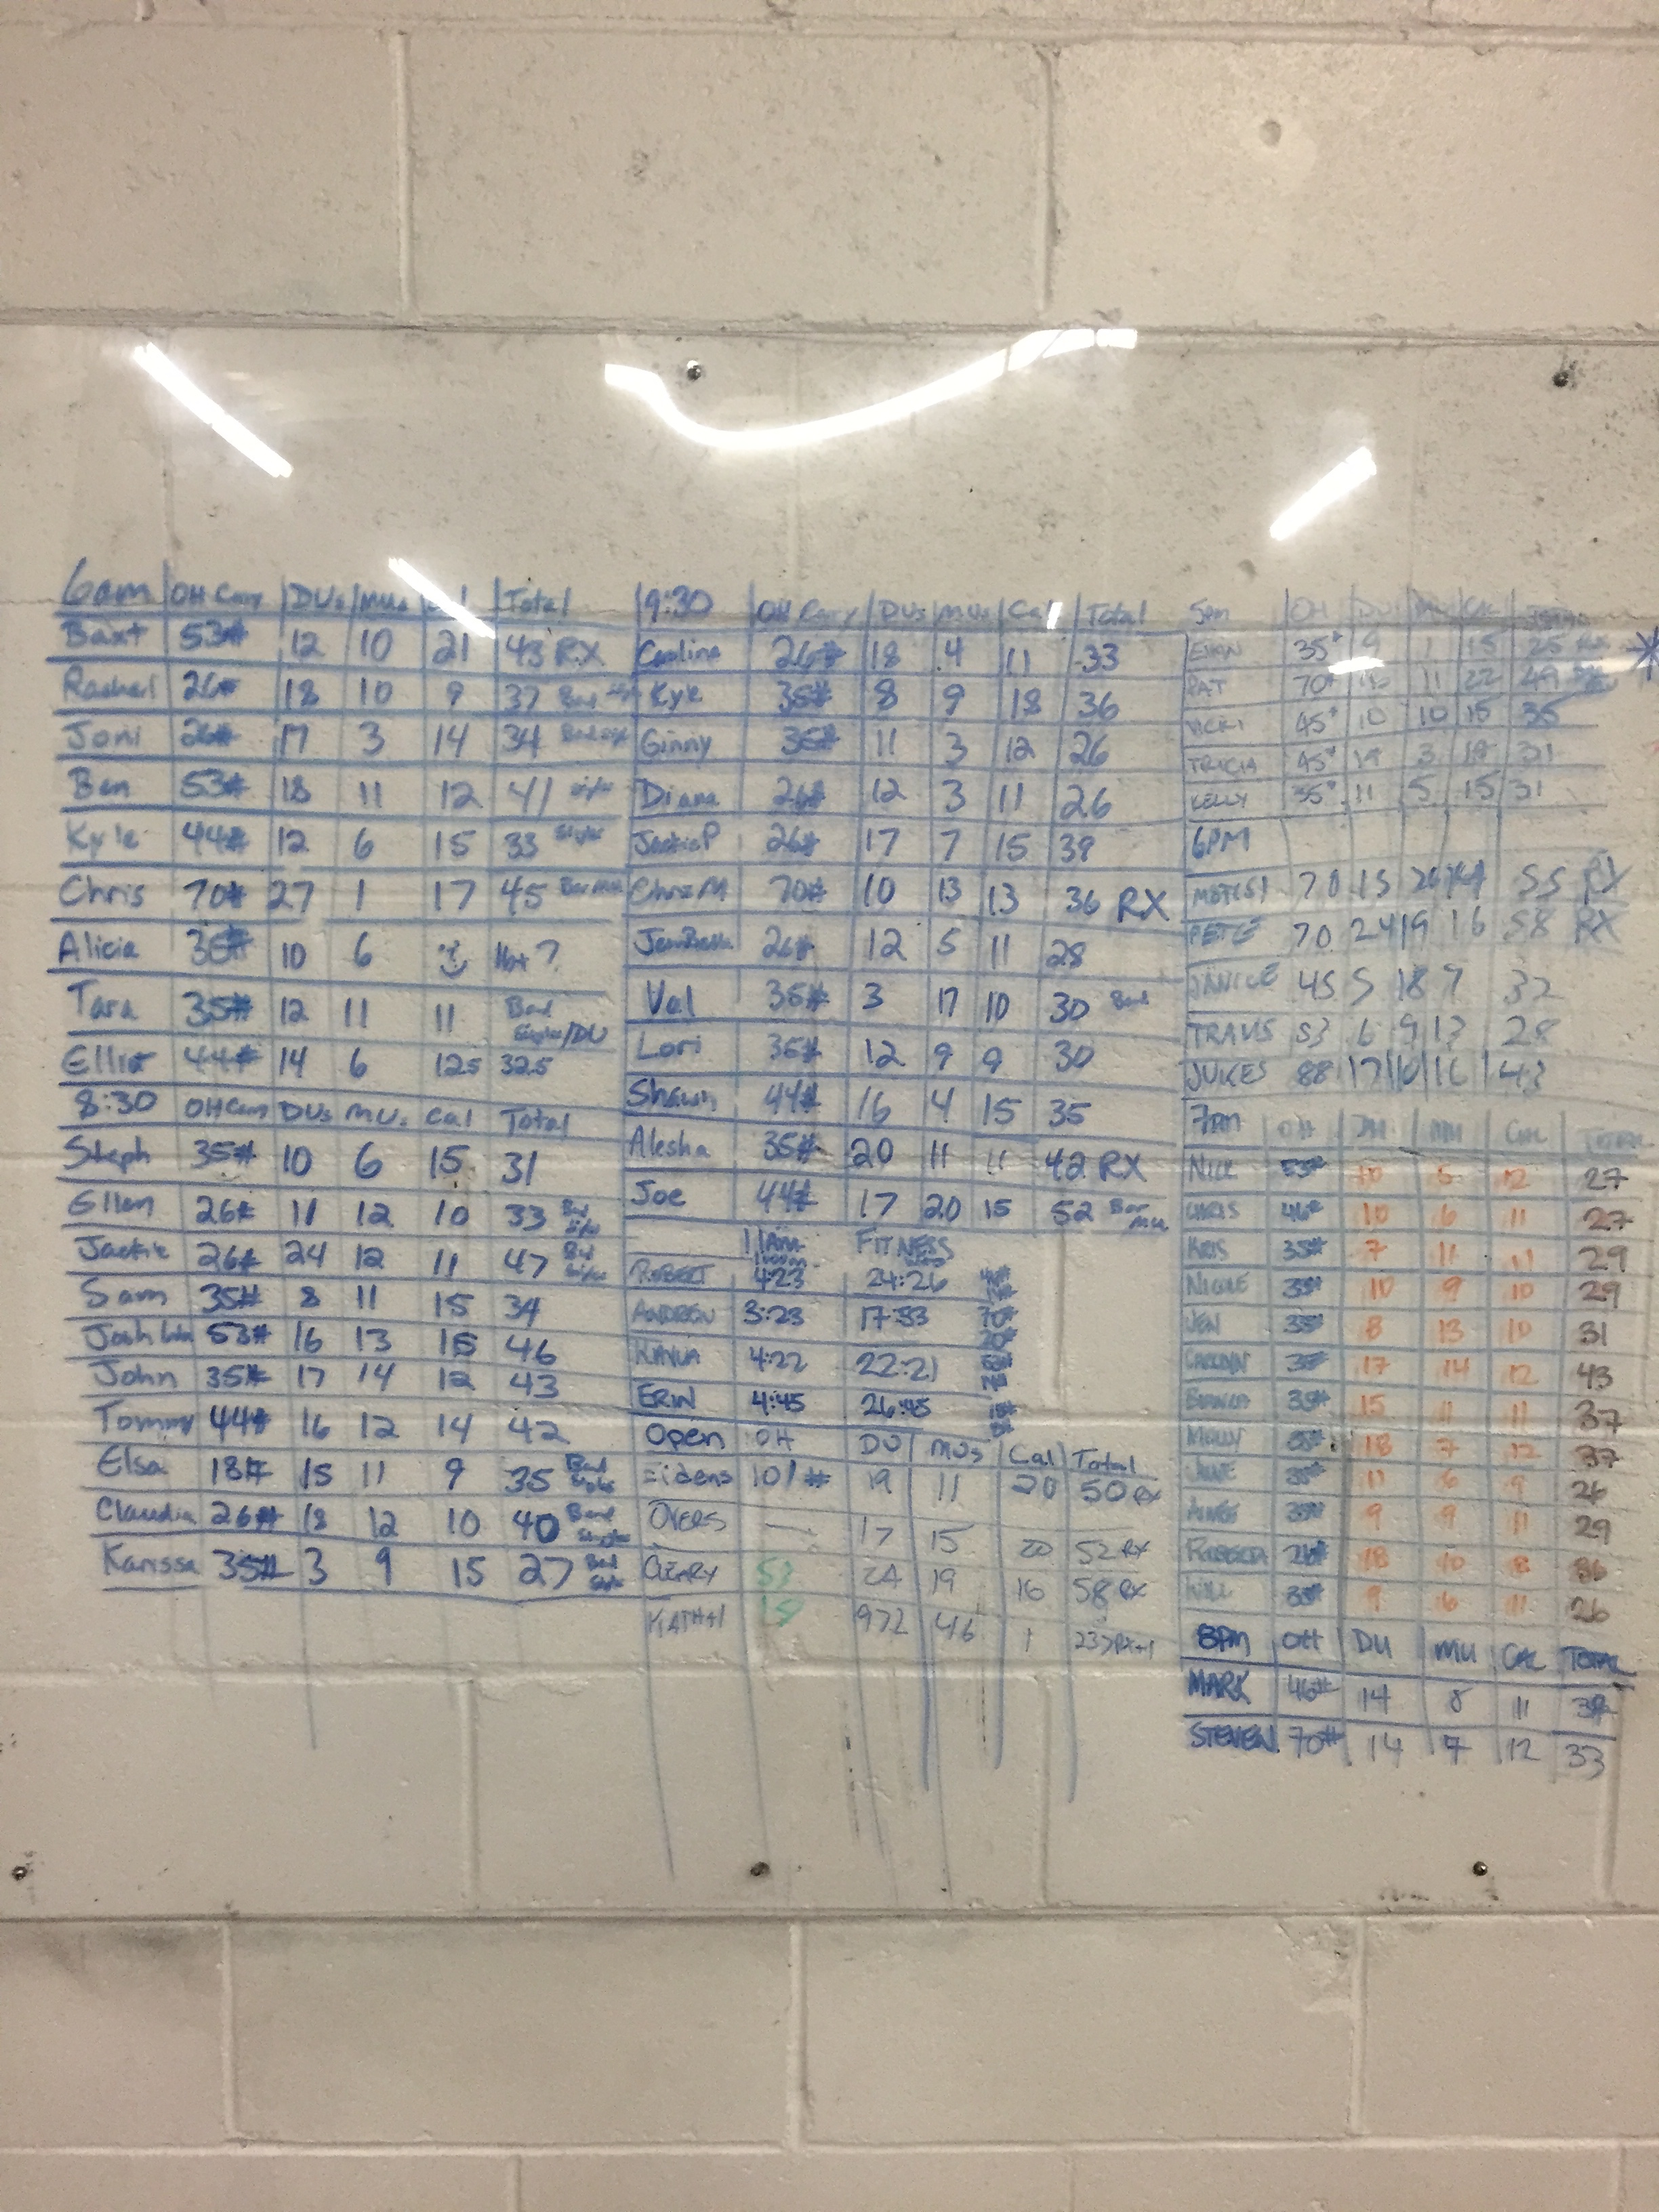 6am OH Carry DUs MUs Total
Baxt 53# 12 10 21 43 RX
Rachel 26# 18 10 9 37 Band
Joni 26# 17 3 14 34
Ben 53# 18 11 12 41
Kyle 44# 12 6 15 33
Chris 70# 27 1 17 45 Bar MU
Alicia 35# 10 6
Tara 35# 12 11 11 Band Singles/DU
Elliot 44# 14 6 12.5 32.5
8:30 OH Carry DUs MUs Cal Total
Steph 35# 10 6 15 31
Ellen 26# 11 12 10 33 Band
Jackie 26# 24 12 11 47
Sam 35# 8 11 15 34
Josh 53# 16 13 15 46
John 35# 17 14 12 43
Tommy 44# 16 12 14 42
Elsa 18# 15 11 9 35 Band
Claudia 26# 18 12 10 40 Band
Karissa 35# 3 9 15 27 Band
9:30 OH Carry DUs MUs Cal Total
Caroline 26# 18 4 11 33
Kyle 35# 8 9 18 36
Ginny 35# 11 3 12 26
Diana 26# 12 3 11 26
Jackie P 26# 17 7 15 39
Chris M 70# 10 13 13 36 RX
26# 12 5 11 28
Val 35# 3 17 10 30 Band
Lori 35# 12 9 9 30
Shawn 44# 16 4 15 35
Alesha 35# 20 11 11 42 RX
Joe 44# 17 20 15 52 Bar MU
11am FITNESS
ROBERT 4:23 24:26
ANDREW 3:23 17:33
KAYLA 4:22 22:21
ERIN 4:45 26:45
Open OH DU MUs Cal Total
Eidens 101# 19 11 20 50 RX
OVERS — 17 15 20 52 RX
53 24 19 16 58 RX
972 46 1
5pm OH DU MU CAL
EVAN 35# 9 1 15 25
PAT 70# 16 11 22 49
VICKI 45# 10 10 15 35
TRICIA 45# 31
KELLY 35# 11 5 15 31
6PM
70 15 55 RX
PETE 70 24 19 16 58 RX
JANICE 45 5 18 9 32
TRAVIS 53 6 9 13 28
JUKES 88 17 10 16 43
7PM OH DU MU CAL TOTAL
NICK 53# 10 5 12 27
CHRIS 46# 10 6 11 27
KRIS 35# 7 11 11 29
NICOLE 35# 10 9 10 29
JEN 35# 8 13 10 31
CAROLYNN 35# 17 14 12 43
BIANCA 35# 15 11 11 37
MOLLY 35# 18 7 12 37
35# 11 6 9 26
AIMEE 35# 9 9 11 29
REBECCA 26# 18 10 8 36
WILL 35# 9 6 11 26
8PM OH DU MU CAL TOTAL
MARK 46# 14 8 11
STEVEN 70# 14 7 12 33